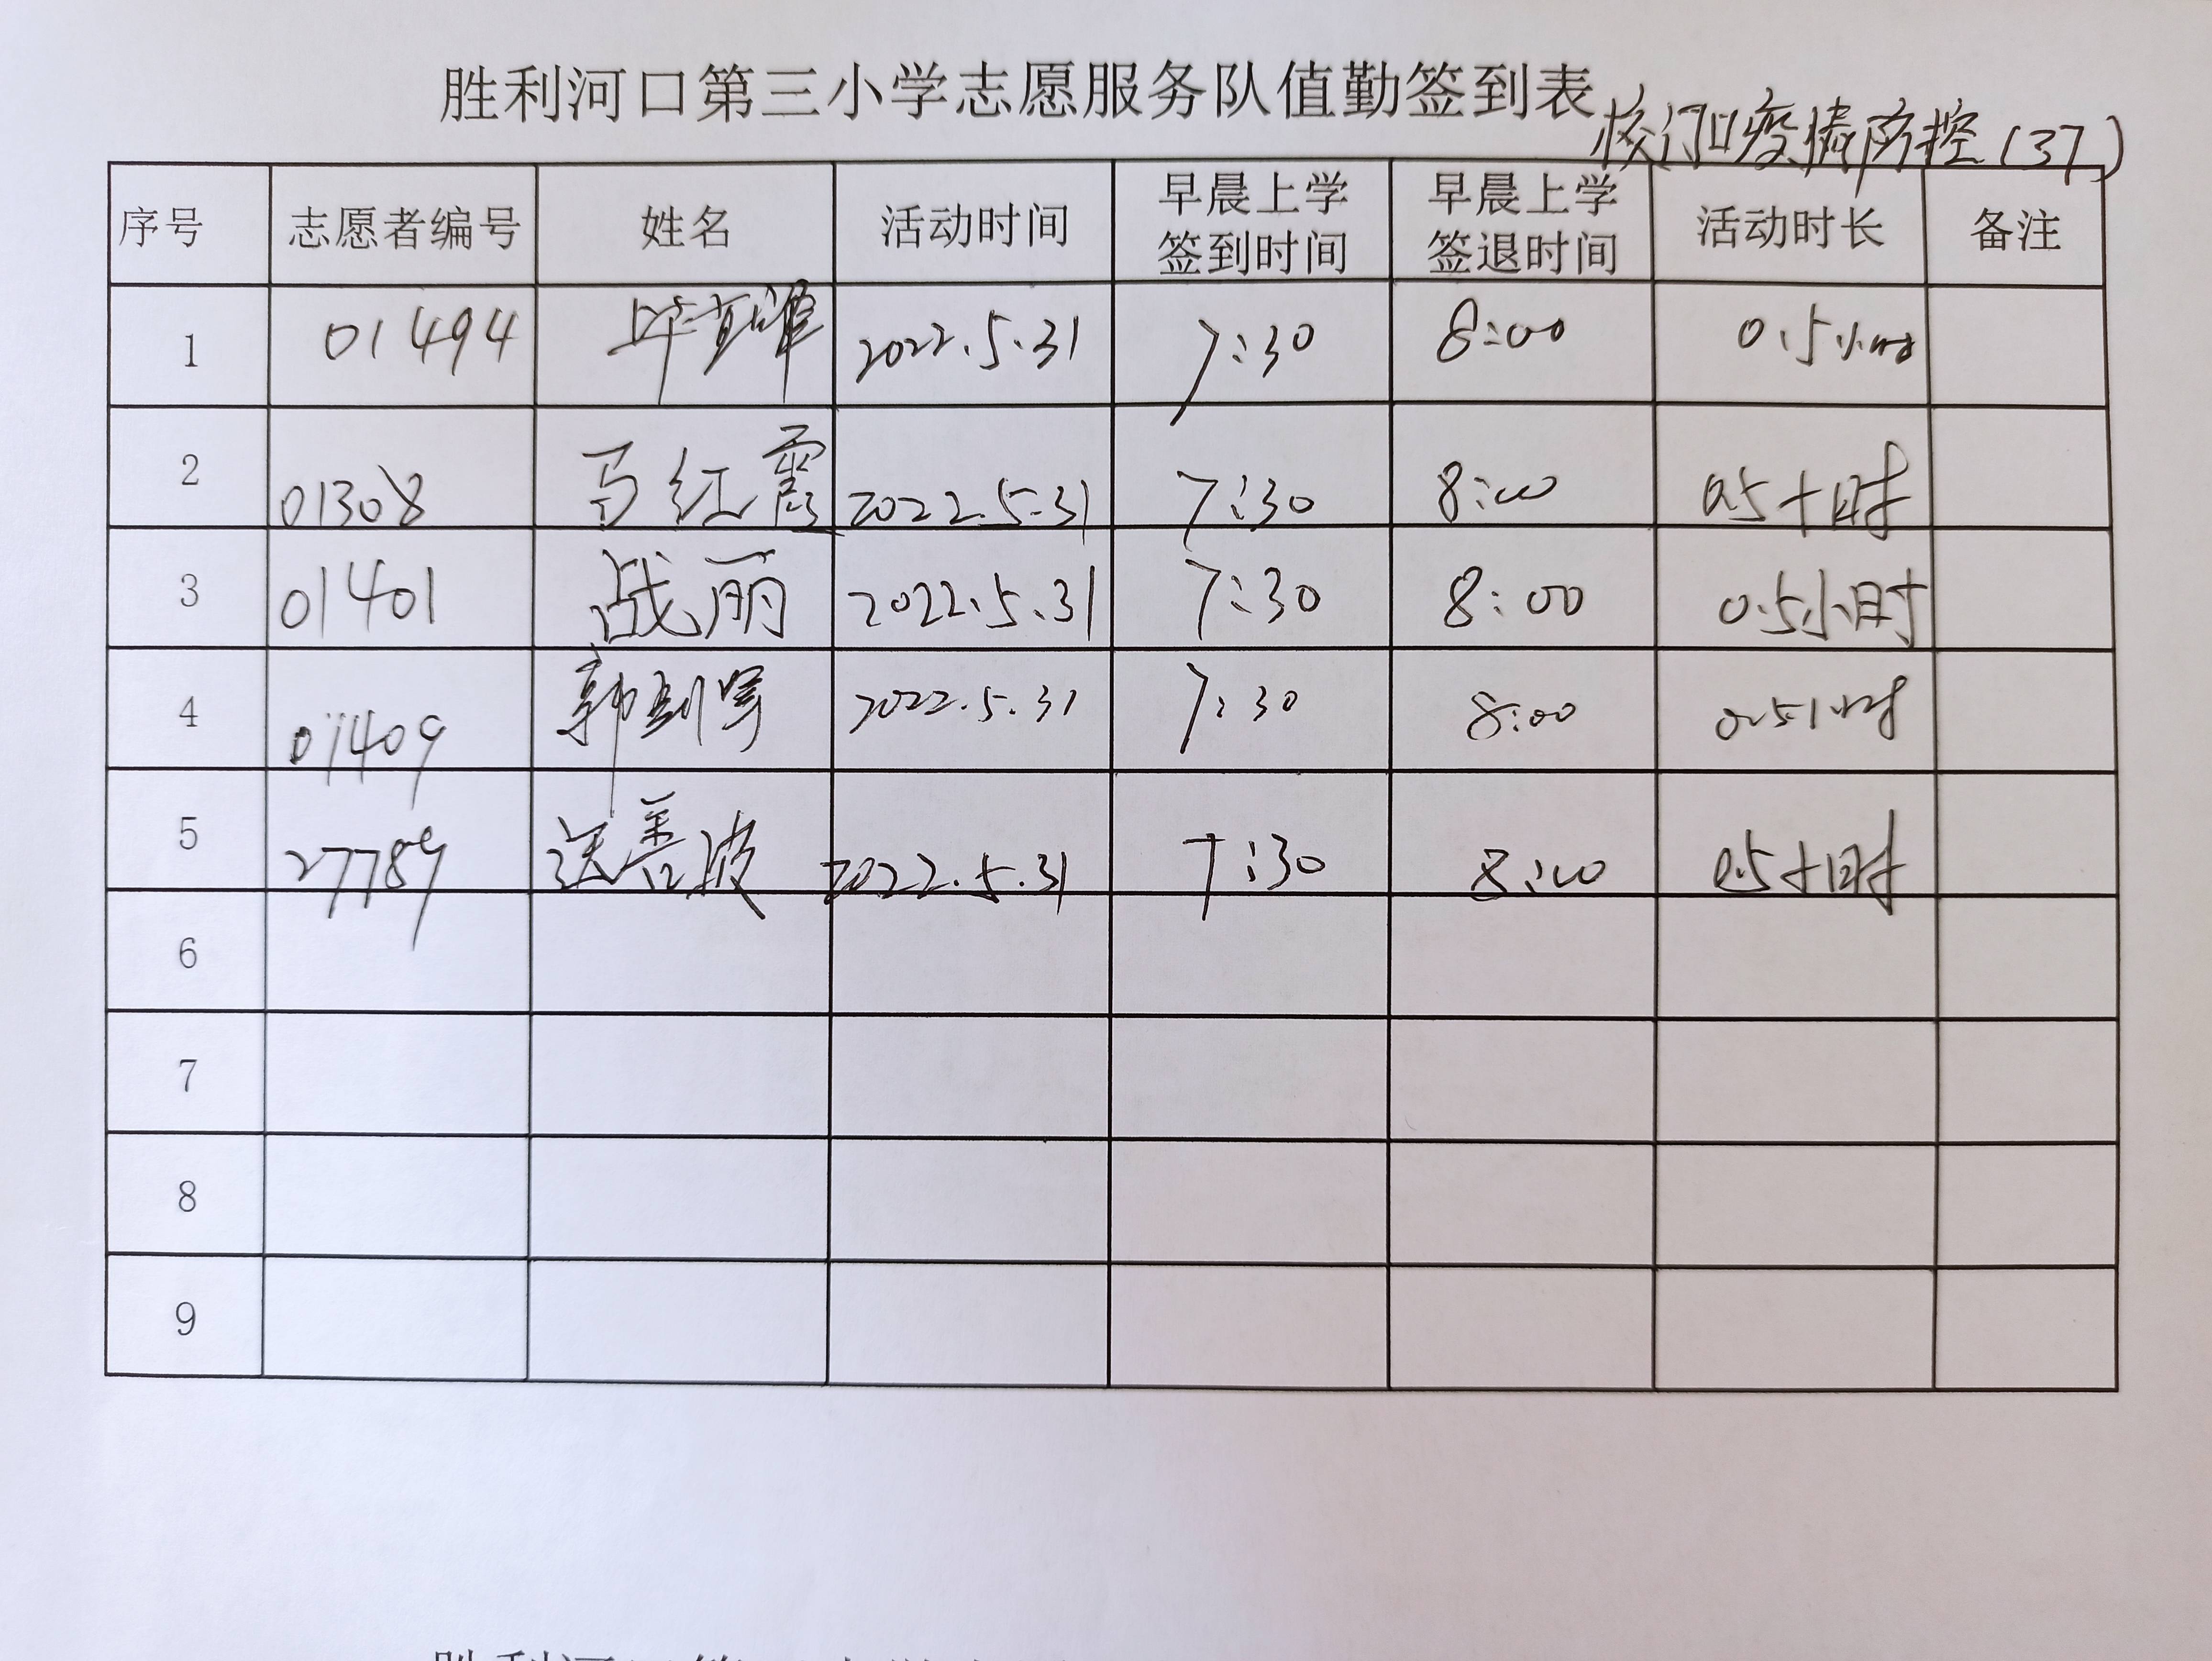 胜利河口第三小学志愿服务队值勤签到表
校门口疫情防控(37)
序号 志愿者编号 姓名 活动时间 早晨上学签到时间 早晨上学签退时间 活动时长 备注
1 01494 2022.5.31 7:30 8:00 0.5小时
2 01308 马红霞 2022.5.31 7:30 8:00 0.5小时
3 01401 战丽 2022.5.31 7:30 8:00 0.5小时
4 01409 2022.5.31 7:30 8:00 0.5小时
5 27789 2022.5.31 7:30 8:00 0.5小时
6
7
8
9